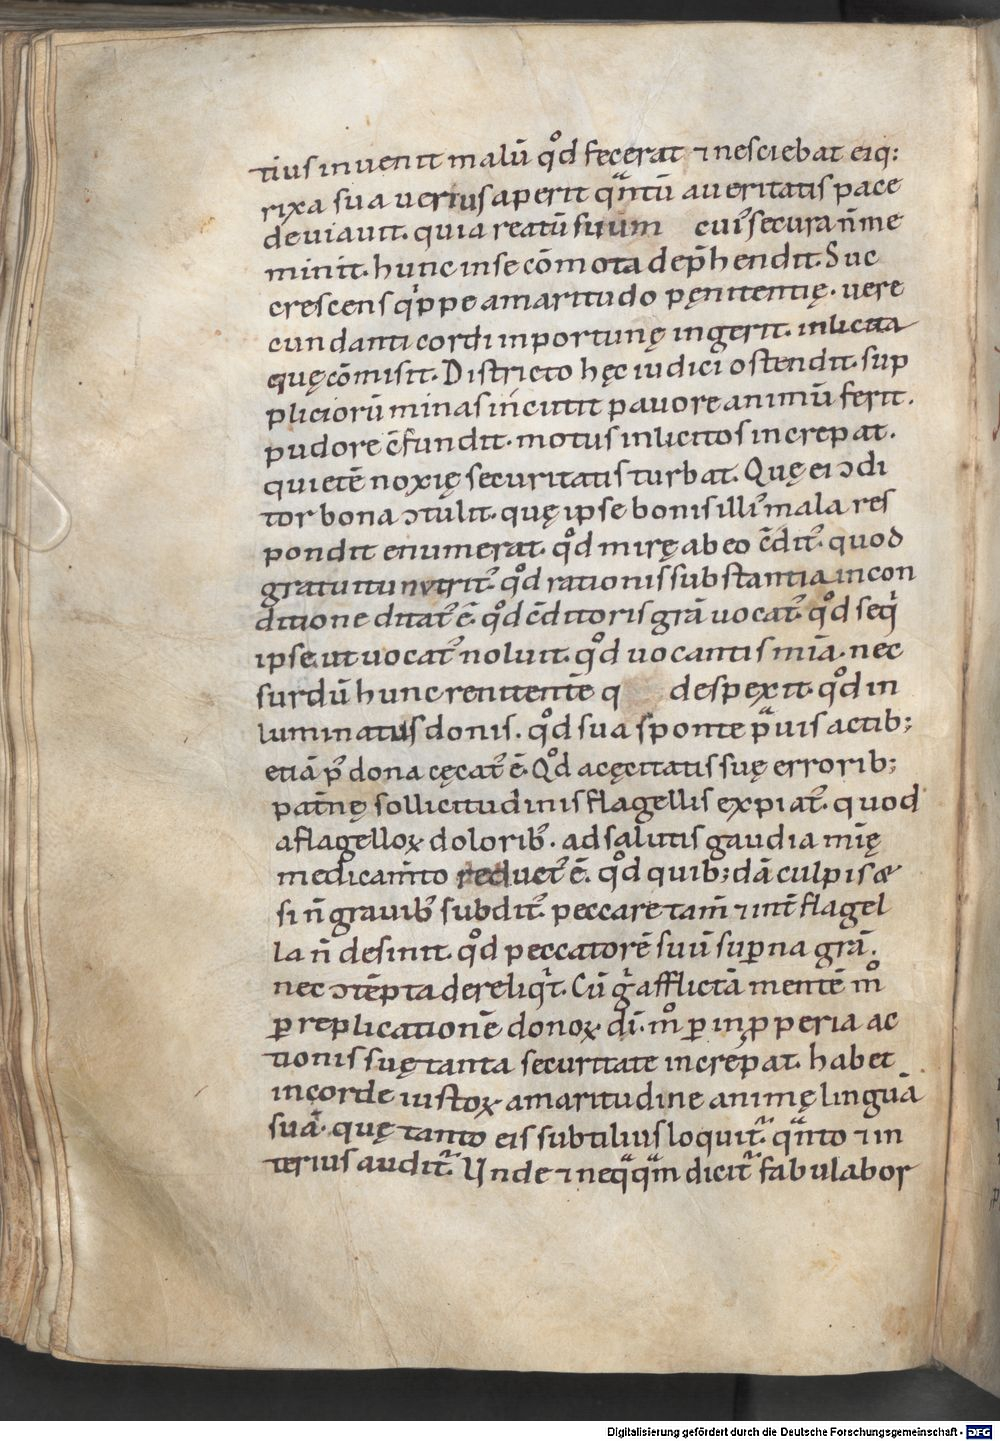 tius inuenit malū qͦd fecerat ⁊ nesciebat eiq:
rixa sua uerius aperit qͣntū a ueritatis pace
deuiauit. quia reatū suum cuiꝰ secura n̄ me
minit. hunc in se cōmota dep̄hendit. Suc
crescens qͥppe amaritudo pęnitentię. uere
cundanti cordi inportunę ingerit. inlicita
quę cōmisit. Districto hęc iudici ostendit. sup
pliciorū minas incutit pauore animū ferit.
pudore c̄fundit. motus inlicitos increpat.
quietē noxię securitatis turbat. Quę ei ɔdi
tor bona ɔtulit. quę ipse bonis illiꝰ mala res
pondit enumerat. qͦd mirę ab eo c̄ditꝰ. quod
gratuitu nutritꝰ. qͦd rationis substantia in con
ditione ditatꝰ ē. qͦd c̄ditoris grā uocatꝰ. qͦd seqͥ
ipse. ut uocatꝰ noluit. qͦd uocantis mīa. nec
surdū hunc renitentē q despexit. qͦd in
luminatus donis. qͦd sua sponte pͣuis actib;
etiā pꝰ dona cęcatꝰ ē. Qͦd a cęcitatis suę errorib;
pat̄nę sollicitudinis flagellis expiatꝰ. quod
a flagelloꝝ doloribꝰ. ad salutis gaudia mīę
medicam̄to reductꝰ ē. qͦd quib; dā culpis æ
si n̄ grauibꝰ subditꝰ. peccare tam̄ ⁊ int̄ flagel
la n̄ desinit. qͦd peccatorē suū suꝑna grā.
nec ɔtēpta dereliqͥt. Cū gͥ afflictā mentē mͦ
ꝑ replicationē donoꝝ dī. mͦ ꝑ inꝓperia ac
tionis suę tanta securitate increpat. habet
in corde iustoꝝ amaritudine animę linguā
suā. quę tanto eis subtilius loquitᷣ. qͣnto ⁊ in
terius auditᷣ. Unde ⁊ neqͣqͣm dicitᷣ fabulabor
Digitalisierung gefördert durch die Deutsche Forschungsgemeinschaft - DFG